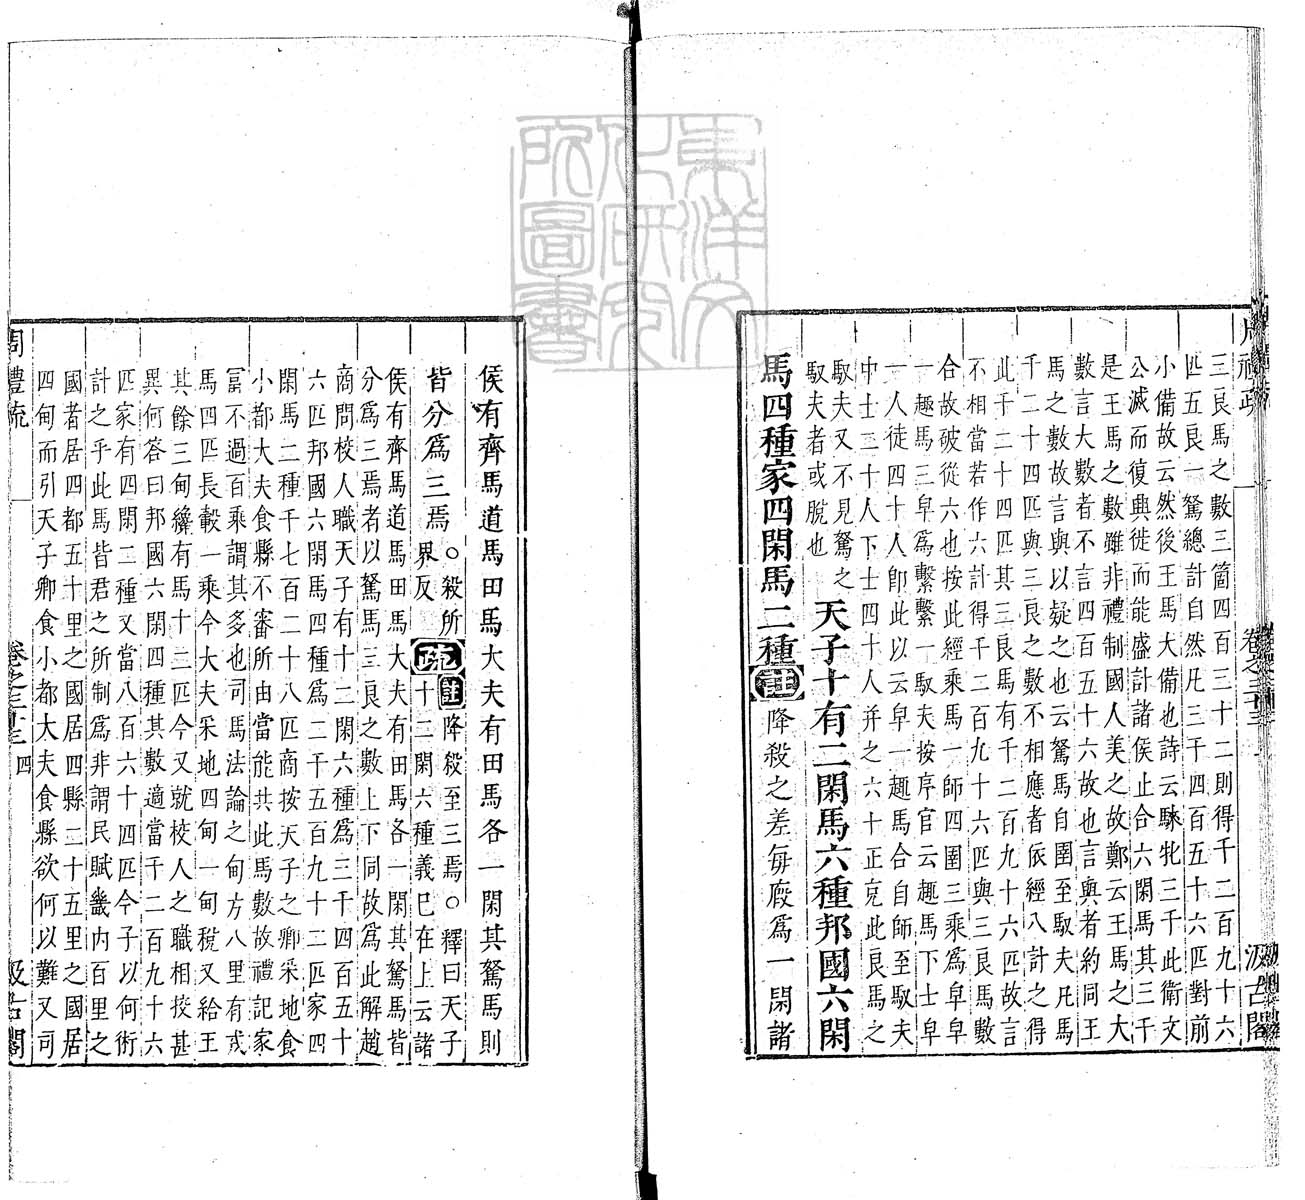 三良馬之數三箇四百三十二則得千二百九十六
匹五良一駑總計自然凡三千四百五十六匹對前
小備故云然後王馬大備也詩云騋牝三千此衛文
公滅而復興徙而能盛計諸侯止合六閑馬其三千
是王馬之數雖非禮制國人美之故鄭云王馬之大
數言大數者不言四百五十六故也言與者約同王
馬之數故言與以疑之也云駑馬自圉至馭夫凡馬
千二十四匹與三良之數不相應者依經八計之得
此千二十四匹其三良馬有千二百九十六匹故言
不相當若作六計得千二百九十六匹與三良馬數
合故破從六也按此經乘馬一師四圉三乘爲皁皁
一趣馬三皁爲繫繫一馭夫按序官云趣馬下士皁
一人徒四十人卽此以云皁一趣馬合自師至馭夫
中士二十人下士四十人并之六十正充此良馬之
馭夫又不見駑之
馭夫者或脫也
天子十有二閑馬六種邦國六閑
馬四種家四閑馬二種
註
降殺之差每廄爲一閑諸
侯有齊馬道馬田馬大夫有田馬各一閑其駑馬則
皆分爲三焉○殺所
界反
疏
註
降殺至三焉○釋曰天子
十二閑六種義已在上云諸
侯有齊馬道馬田馬大夫有田馬各一閑其駑馬皆
分爲三焉者以駑馬三良之數上下同故爲此解趙
商問校人職天子有十二閑六種爲三千四百五十
六匹邦國六閑馬四種爲二千五百九十二匹家四
閑馬二種千七百二十八匹商按天子之卿采地食
小都大夫食縣不審所由當能共此馬數故禮記家
富不過百乘謂其多也司馬法論之甸方八里有戎
馬四匹長轂一乘今大夫采地四甸一甸稅又給王
其餘三甸纔有馬十二匹今又就校人之職相挍甚
異何答曰邦國六閑四種其數適當千二百九十六
匹家有四閑二種又當八百六十四匹今子以何術
計之乎此馬皆君之所制爲非謂民賦畿內百里之
國者居四都五十里之國居四縣二十五里之國居
四甸而引天子卿食小都大夫食縣欲何以難又司
周禮疏
卷之三十三
四
汲古閣